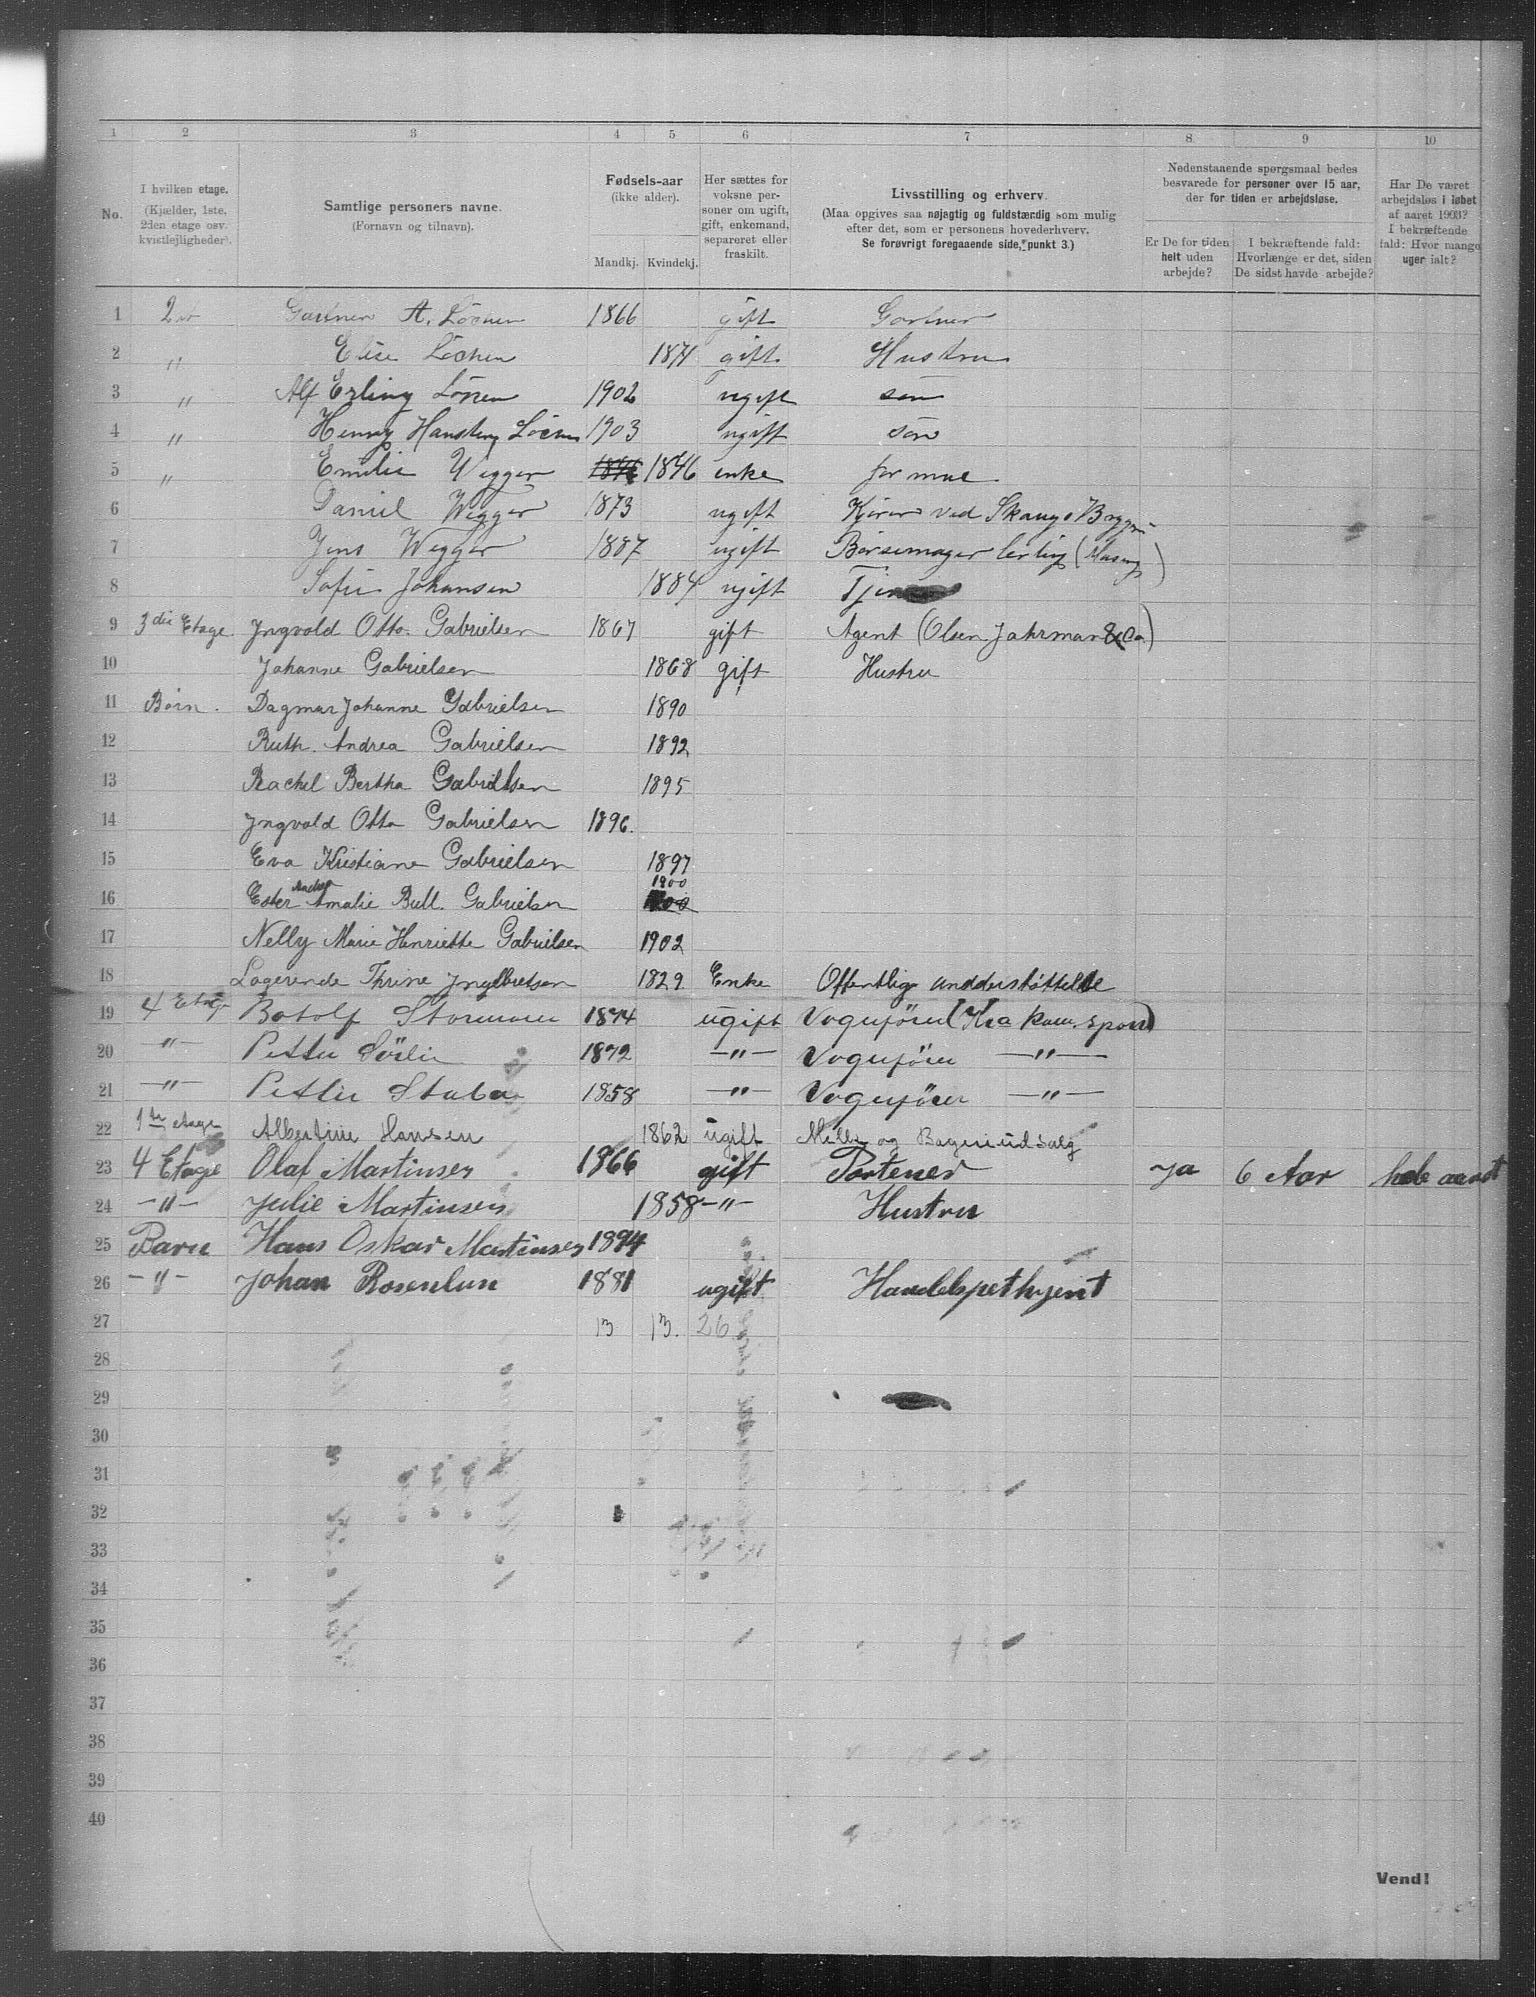 1 2 3 4 5 6 7 8 9 10
No.
I hvilken etage.
(Kjælder, 1ste,
2den etage osv.
kvistlejligheder).
Samtlige personers navne.
(Fornavn og tilnavn).
Fødsels-aar
(ikke alder).
Mandkj. Kvindekj.
Her sættes for
voksne per-
soner om ugift,
gift, enkemand,
separeret eller
fraskilt.
Livsstilling og erhverv.
(Maa opgives saa nøjagtig og fuldstændig som mulig
efter det, som er personens hovederhverv.
Se forøvrigt foregaaende side, punkt 3.)
Nedenstaaende spørgsmaal bedes
besvarede for personer over 15 aar,
der for tiden er arbejdsløse.
Er De for tiden
helt uden
arbejde?
I bekræftende fald:
Hvorlænge er det, siden
De sidst havde arbejde?
Har De været
arbejdsløs i løbet
af aaret 1903?
I bekræftende
fald: Hvor mange
uger ialt?
1 A. Löcken 1866 gift Gartner
2 " Elise Löchen 1871 gift Hustru
3 " Alf Erling 1902 ugift søn
4 " Henry 1903 ugift søn
5 " Emilie Wegger 1846 enke
6 Daniel Wegger 1873 ugift ved
7 Jens Wegger 1887 ugift
8 Sofie Johansen 1884 ugift
9 3die Etage. Yngvold Otto. Gabrielsen 1867 gift Agent (Olsen Jahrman & Co)
10 Johanne Gabrielsen 1868 gift Hustru
11 Børn. Dagmar Johanne Gabrielsen 1890
12 Ruth. Andrea Gabrielsen 1892
13 Rachel Bertha Gabrielsen 1895
14 Yngvold Otto Gabrielsen 1896.
15 Eva Kristiane Gabrielsen 1897
16 Ester Andrea Amalie Bull. Gabrielsen 1900
17 Nelly Marie Henriette Gabrielsen 1902
18 Logerende Thrine Yngelbretsen 1829 Enke Offentlig undderstøttelse
19 4 Etage Botolf 1874 ugift Vognfører
20 —"— Petter 1872 —"— Vognfører —"—
21 —"— Petter 1858 —"— Vognfører —"—
22 1ste etage Albertine Hansen 1862 ugift Melk og
23 4 Etage Olaf Martinsen 1866 gift Portener Ja 6 Aar hele aaret
24 —"— Julie Martinsen 1858 —"— Hustru
25 Barn Hans Oskar Martinsen 1894
26 —"— Johan Rosenlun 1881 ugift Handelsbethjent
27 13 13. 26
28
29
30
31
32
33
34
35
36
37
38
39
40
Vend!